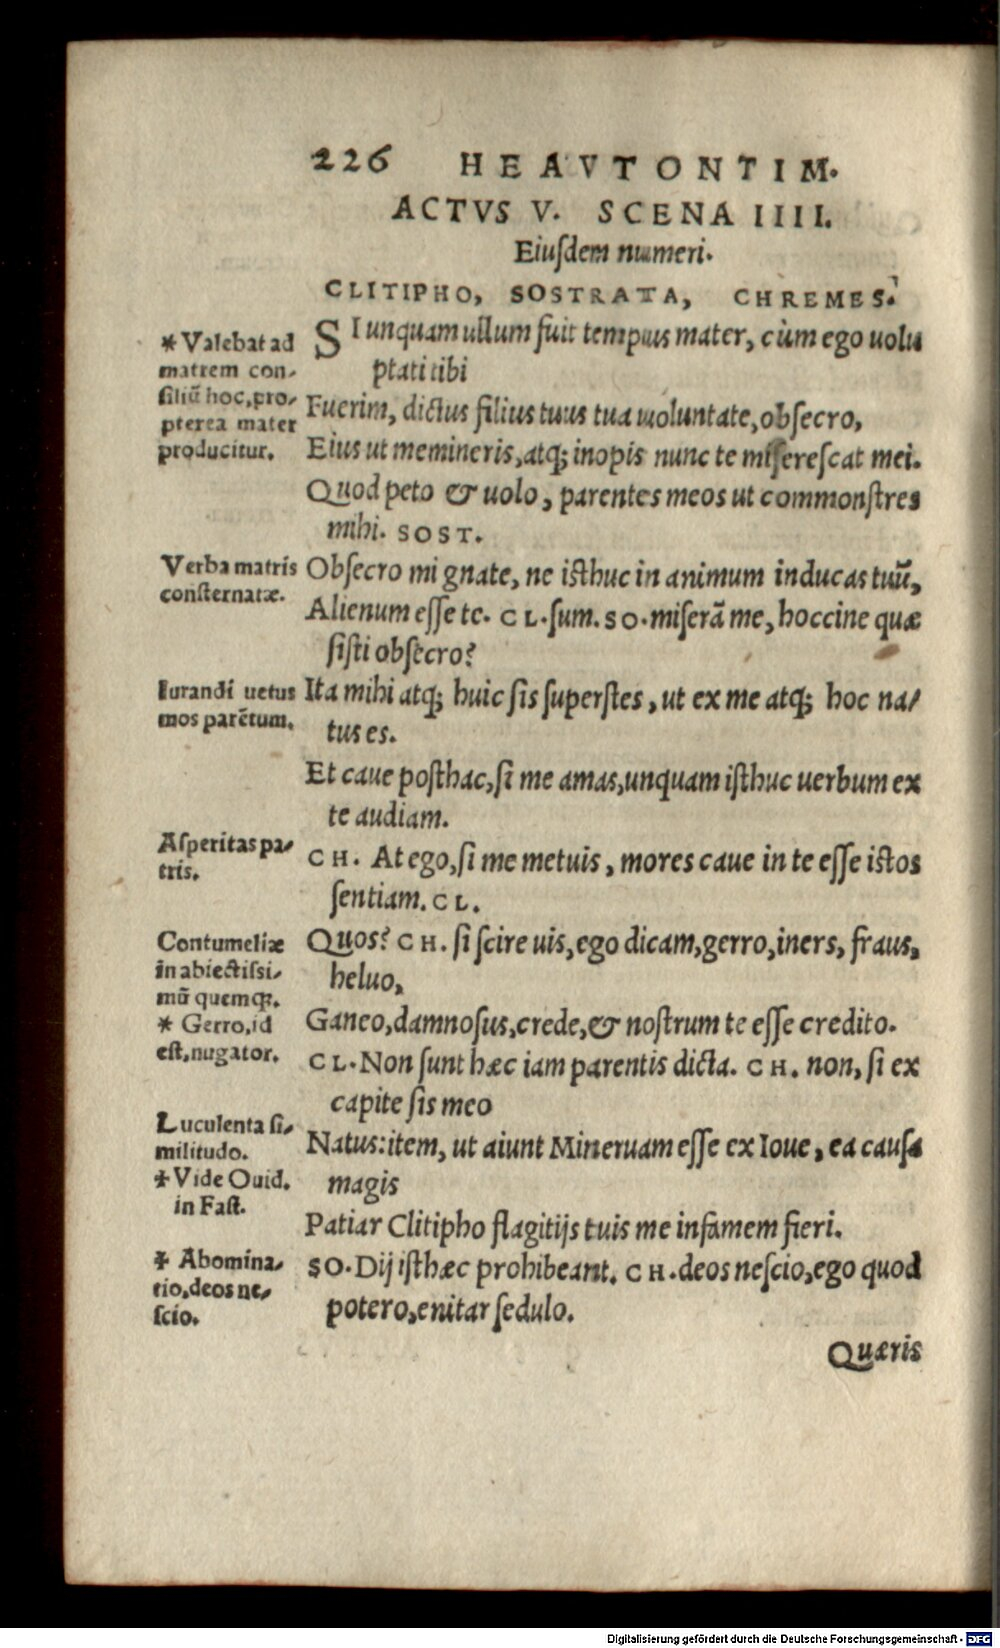 226 HEAVTONTIM.
ACTVS V. SCENA IIII.
Eiuſdem numeri.
CLITIPHO, SOSTRATA, CHREMES.
SI unquam ullum fuit tempus mater, cùm ego uolu
ptati tibi
Fuerim, dictus filius tuus tua uoluntate, obſecro,
Eius ut memineris, atq; inopis nunc te miſereſcat mei.
Quod peto & uolo, parentes meos ut commonſtres
mihi. SOST.
Obſecro mi gnate, ne iſthuc in animum inducas tuũ,
Alienum eſſe te. CL. ſum. SO. miſerã me, hoccine quæ
ſiſti obſecro?
Ita mihi atq; huic ſis ſuperſtes, ut ex me atq; hoc na/
tus es.
Et caue poſthac, ſi me amas, unquam iſthuc uerbum ex
te audiam.
CH. At ego, ſi me metuis, mores caue in te eſſe iſtos
ſentiam. CL.
Quos? CH. ſi ſcire uis, ego dicam, gerro, iners, fraus,
heluo,
Ganeo, damnoſus, crede, & noſtrum te eſſe credito.
CL. Non ſunt hæc iam parentis dicta. CH. non, ſi ex
capite ſis meo
Natus: item, ut aiunt Mineruam eſſe ex Ioue, ea cauſa
magis
Patiar Clitipho flagitijs tuis me infamem fieri.
SO. Dij iſthæc prohibeant. CH. deos neſcio, ego quod
potero, enitar ſedulo.
Quæris
* Valebat ad
matrem con/
ſiliũ hoc, pro/
pterea mater
producitur.
Verba matris
conſternatæ.
Iurandi uetus
mos parẽtum.
Aſperitas pa/
tris.
Contumeliæ
in abiectiſsi/
mũ quemq;.
* Gerro, id
eſt, nugator.
Luculenta ſi/
militudo.
* Vide Ouid.
in Faſt.
* Abomina/
tio, deos ne/
ſcio.
Digitalisierung gefördert durch die Deutsche Forschungsgemeinschaft - DFG